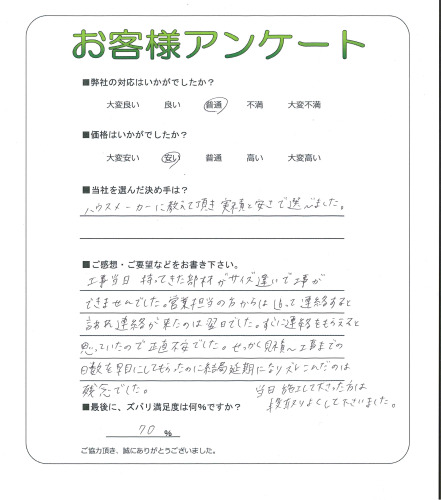 お客様アンケート
■弊社の対応はいかがでしたか？
大変良い 良い 普通 不満 大変不満
■価格はいかがでしたか？
大変安い 安い 普通 高い 大変高い
■当社を選んだ決め手は？
ハウスメーカーに教えて頂き 実績と安さで選びました。
■ご感想・ご要望などをお書き下さい。
工事当日 持ってきた部材がサイズ違いで工事が
できませんでした。営業担当の方からは 追って連絡すると
言われ 連絡が来たのは翌日でした。すぐに連絡をもらえると
思っていたので正直不安でした。せっかく見積り、工事までの
日数を早目にしてもらったのに結局延期になりズレこんだのは
残念でした。
当日 施工して下さった方は
段取りよくして下さいました。
■最後に、ズバリ満足度は何％ですか？
70 ％
ご協力頂き、誠にありがとうございました。